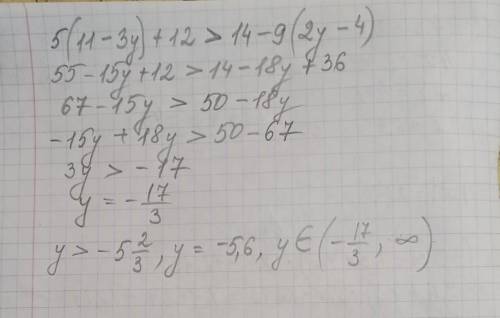 5(11-3y)+12 > 14-9(2y-4)
55-15y+12 > 14-18y+36
67-15y > 50-18y
-15y+18y > 50-67
3y > -17
y = -17/3
y > -5 2/3, y = -5,6, y ∈ (-17/3, ∞)